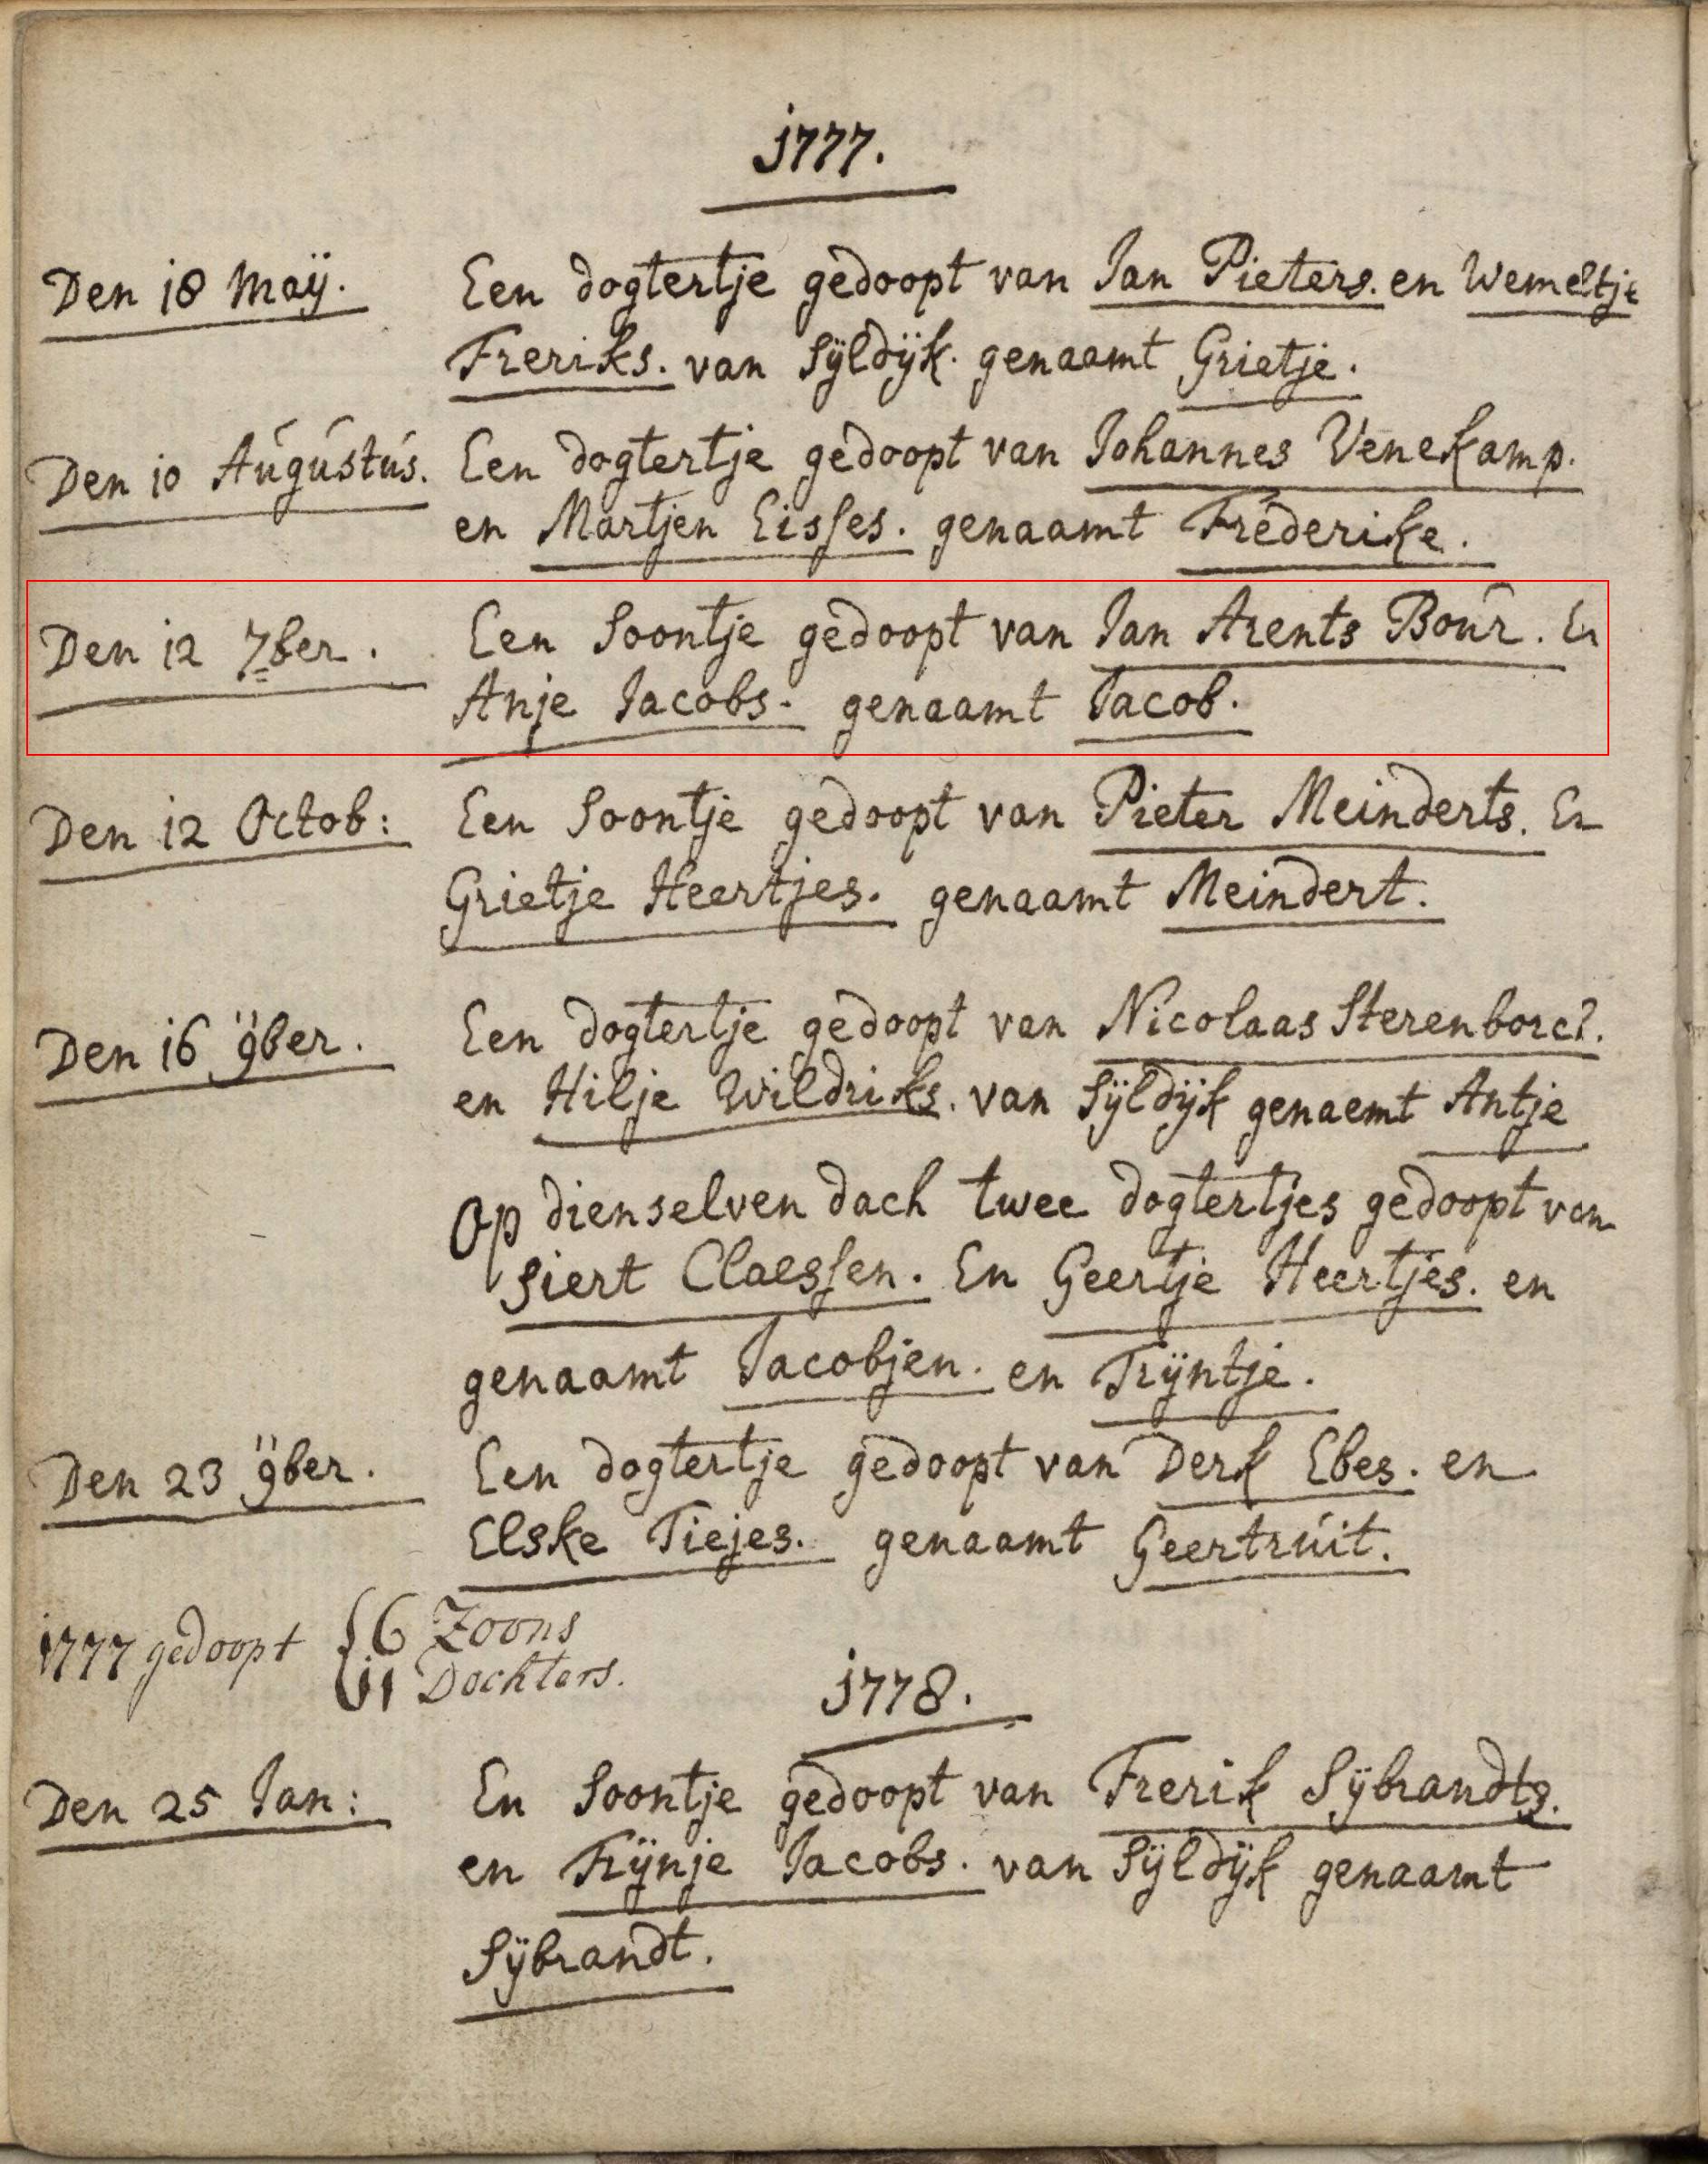 1777.
Den 18 Maÿ. Een dogtertje gedoopt van Jan Pieters. en Wemeltje
Freriks. van Sÿldÿk. genaamt Grietje.
Den 10 Augustus. Een dogtertje gedoopt van Johannes Venekamp.
en Martjen Eisses. genaamt Frederike.
Den 12 7ber. Een Soontje gedoopt van Jan Arents Bour. En
Anje Jacobs. genaamt Jacob.
Den 12 Octob: Een Soontje gedoopt van Pieter Meinderts. En
Grietje Heertjes. genaamt Meindert.
Den 16 9ber. Een dogtertje gedoopt van Nicolaas Sterenborch.
en Hilje Wildriks. van Sÿldÿk genaemt Antje
Op dienselven dach twee dogtertjes gedoopt van
Siert Claessen. En Geertje Heertjes. en
genaamt Jacobjen. en Trÿntje.
Den 23 9ber. Een dogtertje gedoopt van Derk Ebes. en
Elske Tiejes. genaamt Geertruit.
1777 gedoopt { 6 Zoons
11 Dochters.
1778.
Den 25 Jan: En Soontje gedoopt van Frerik Sÿbrandts.
en Trÿnje Jacobs. van Sÿldÿk genaamt
Sÿbrandt.